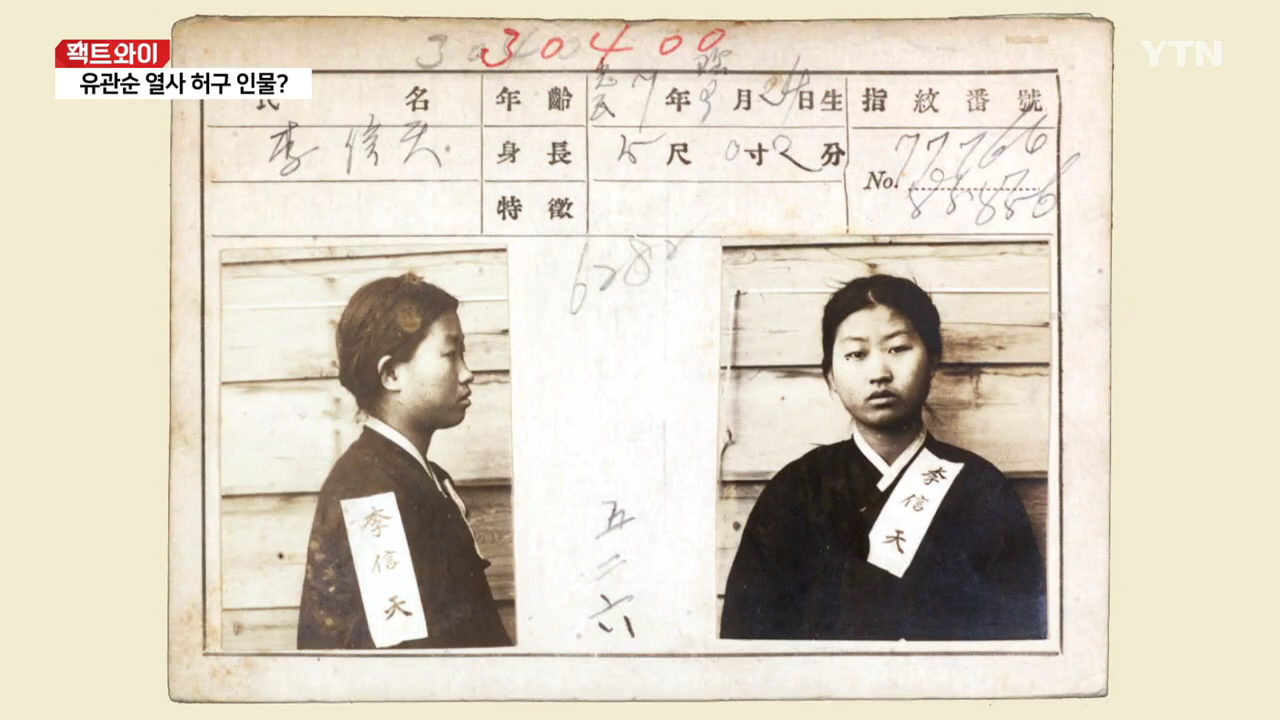 팩트와이
유관순 열사 허구 인물?
YTN
30400
氏 名
年 齡 7年 月24日生
指紋番號
李信天
身 長 5尺0寸2分
No. 77766
特 徵
五二六
李信天
李信天